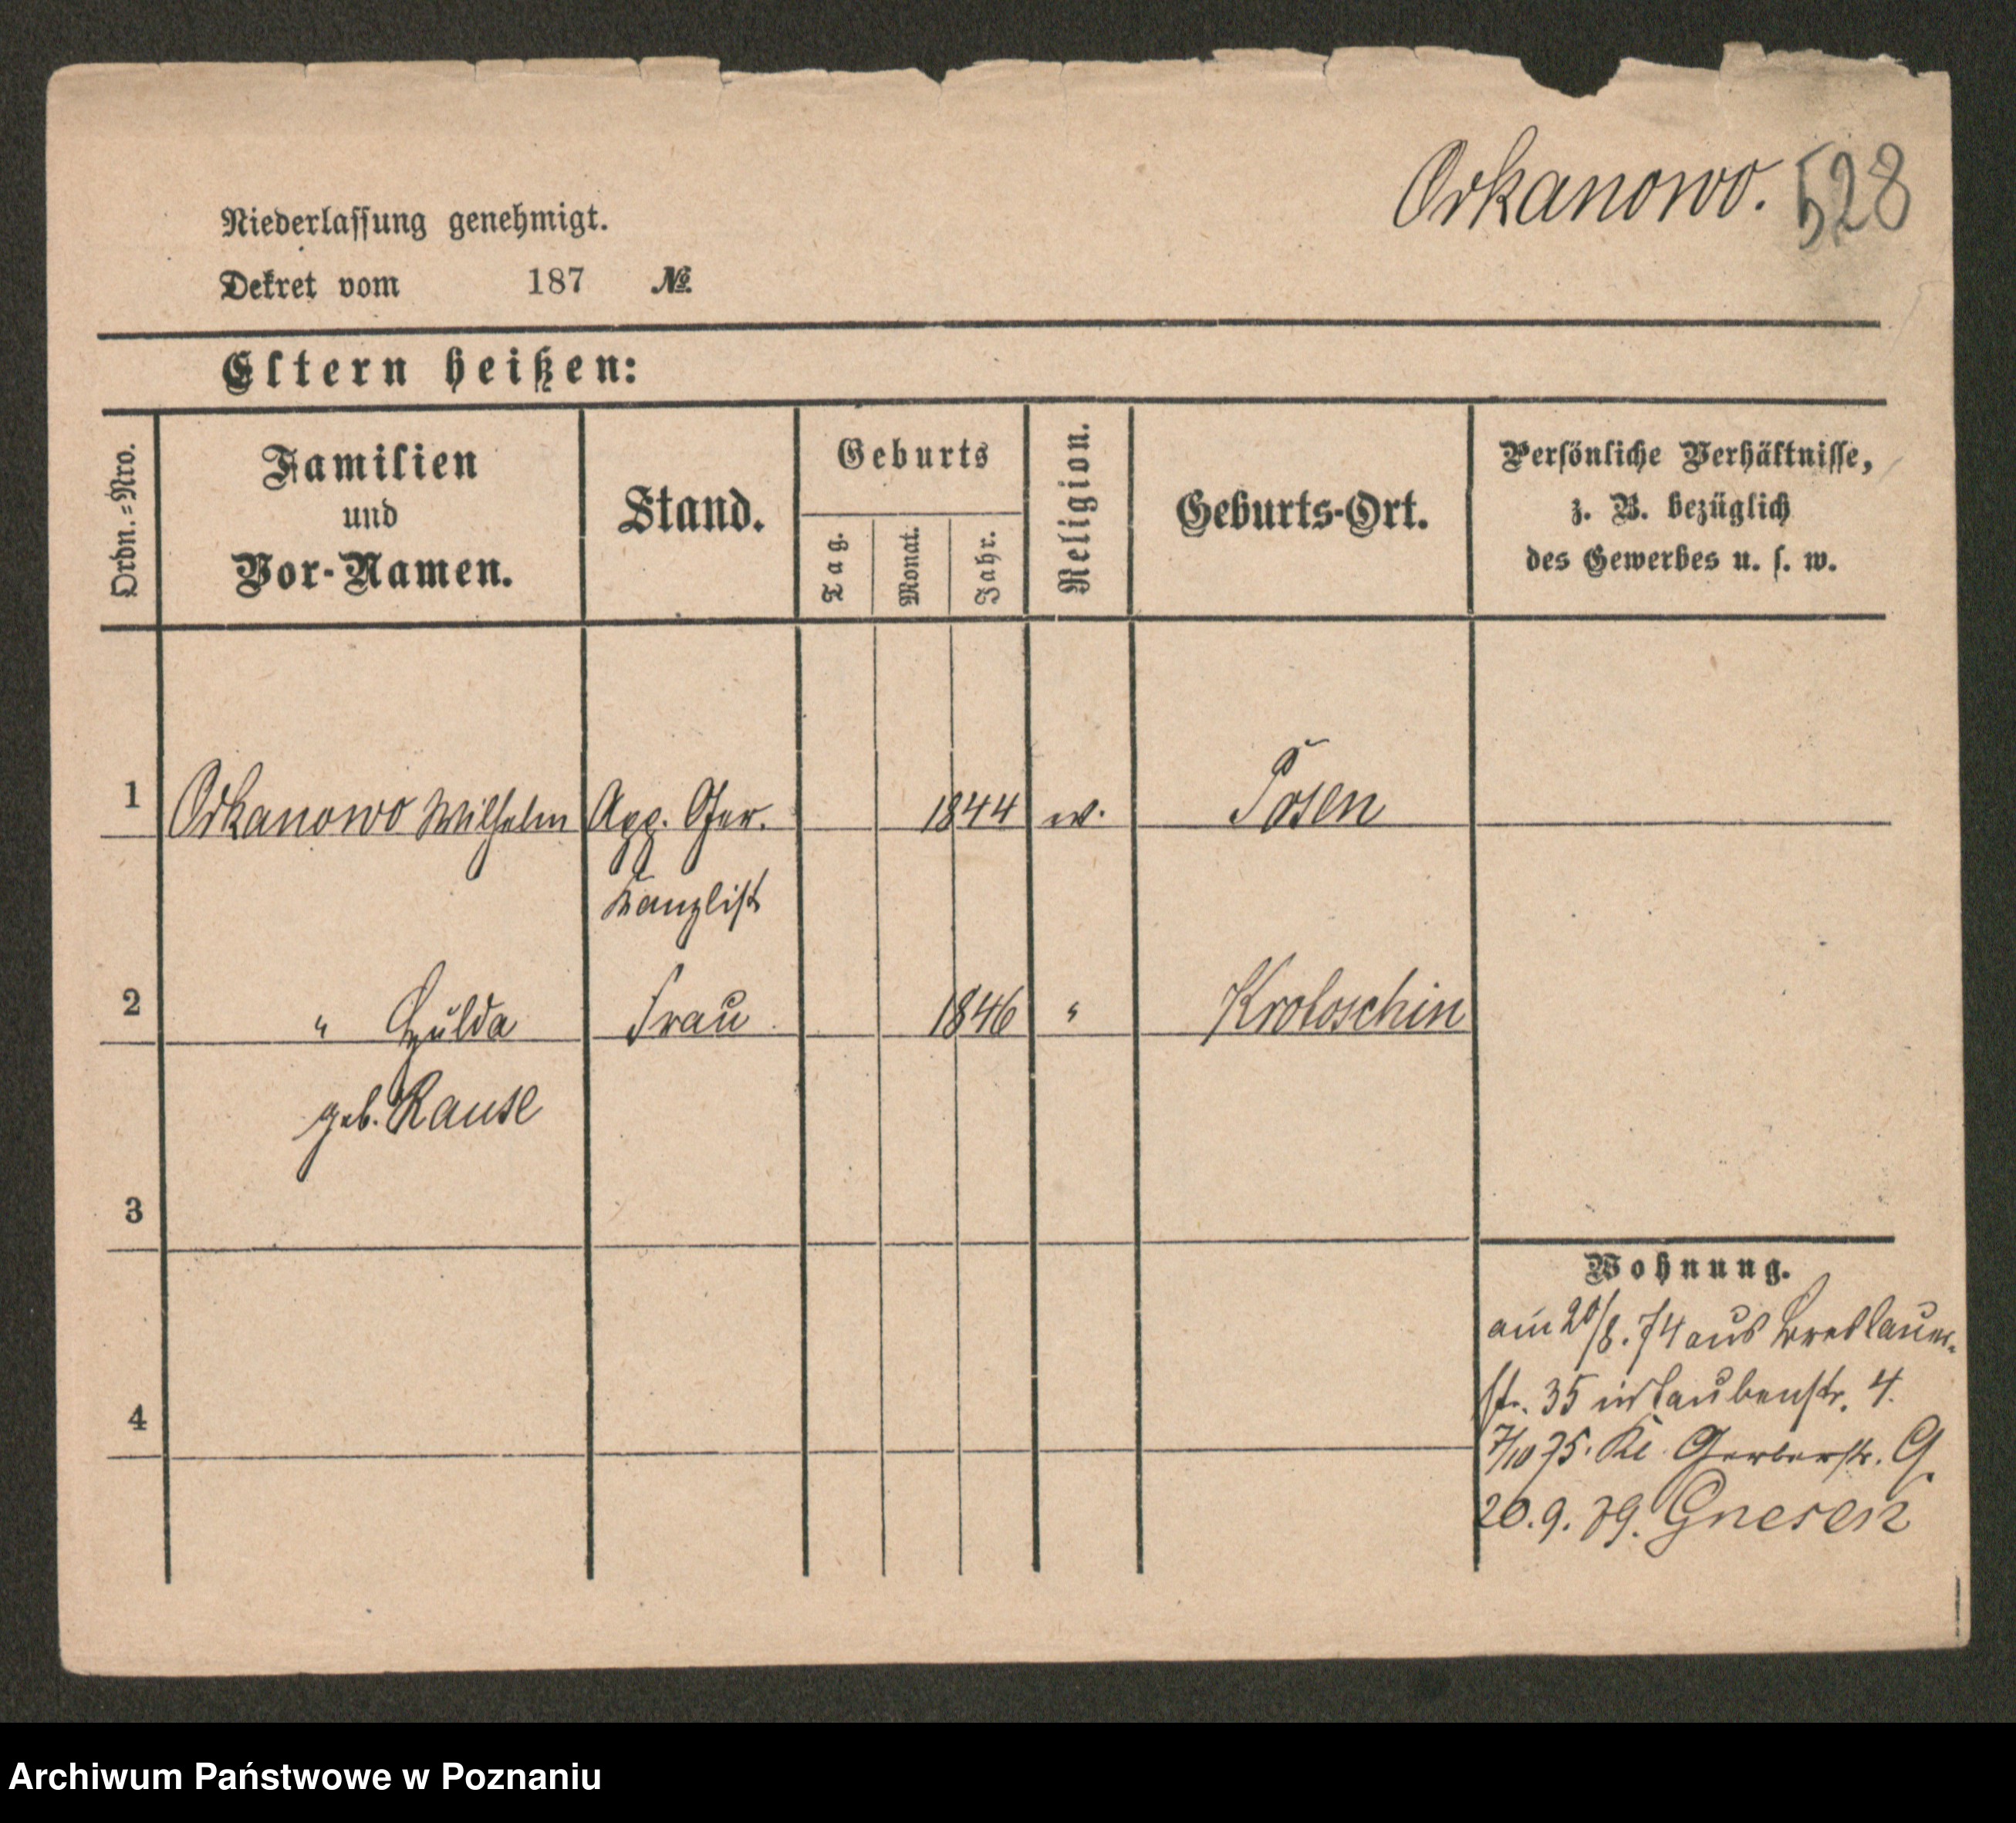 Orkanowo. 528
Niederlassung genehmigt.
Dekret vom 187 №
Eltern heißen:
Ordn.=Nro.
Familien
und
Vor-Namen.
Stand.
Geburts
Tag.
Monat.
Jahr.
Religion.
Geburts-Ort.
Persönliche Verhältnisse,
z. B. bezüglich
des Gewerbes u. s. w.
1 Orkanowo Wilhelm App. Ger. 1844 Posen
Kanzlist
2 " Hulda Frau 1846 " Krotoschin
geb. Rause
3
Wohnung.
am 20/8. 74 aus Breslauer-
str. 35 in Taubenstr. 4.
4
7/10 75. Kl Gerberstr. 9.
20.9.79. Gnesen
Archiwum Państwowe w Poznaniu